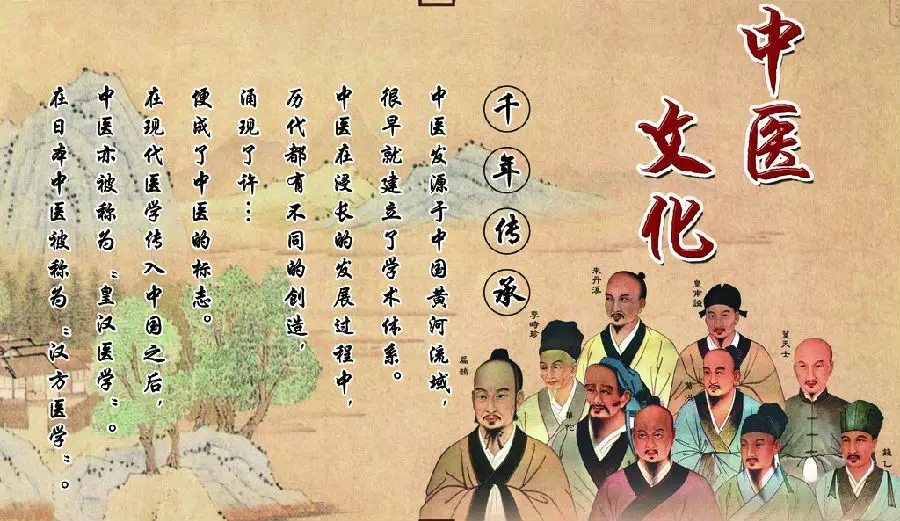 中医
文化
千年传承
中医发源于中国黄河流域，
很早就建立了学术体系。
中医在漫长的发展过程中，
历代都有不同的创造，
涌现了许…
便成了中医的标志。
在现代医学传入中国之后，
中医亦被称为“皇汉医学”。
在日本中医被称为“汉方医学”。
朱丹溪
皇甫謐
李時珍
葉天士
扁鵲
葛洪
華佗
錢乙